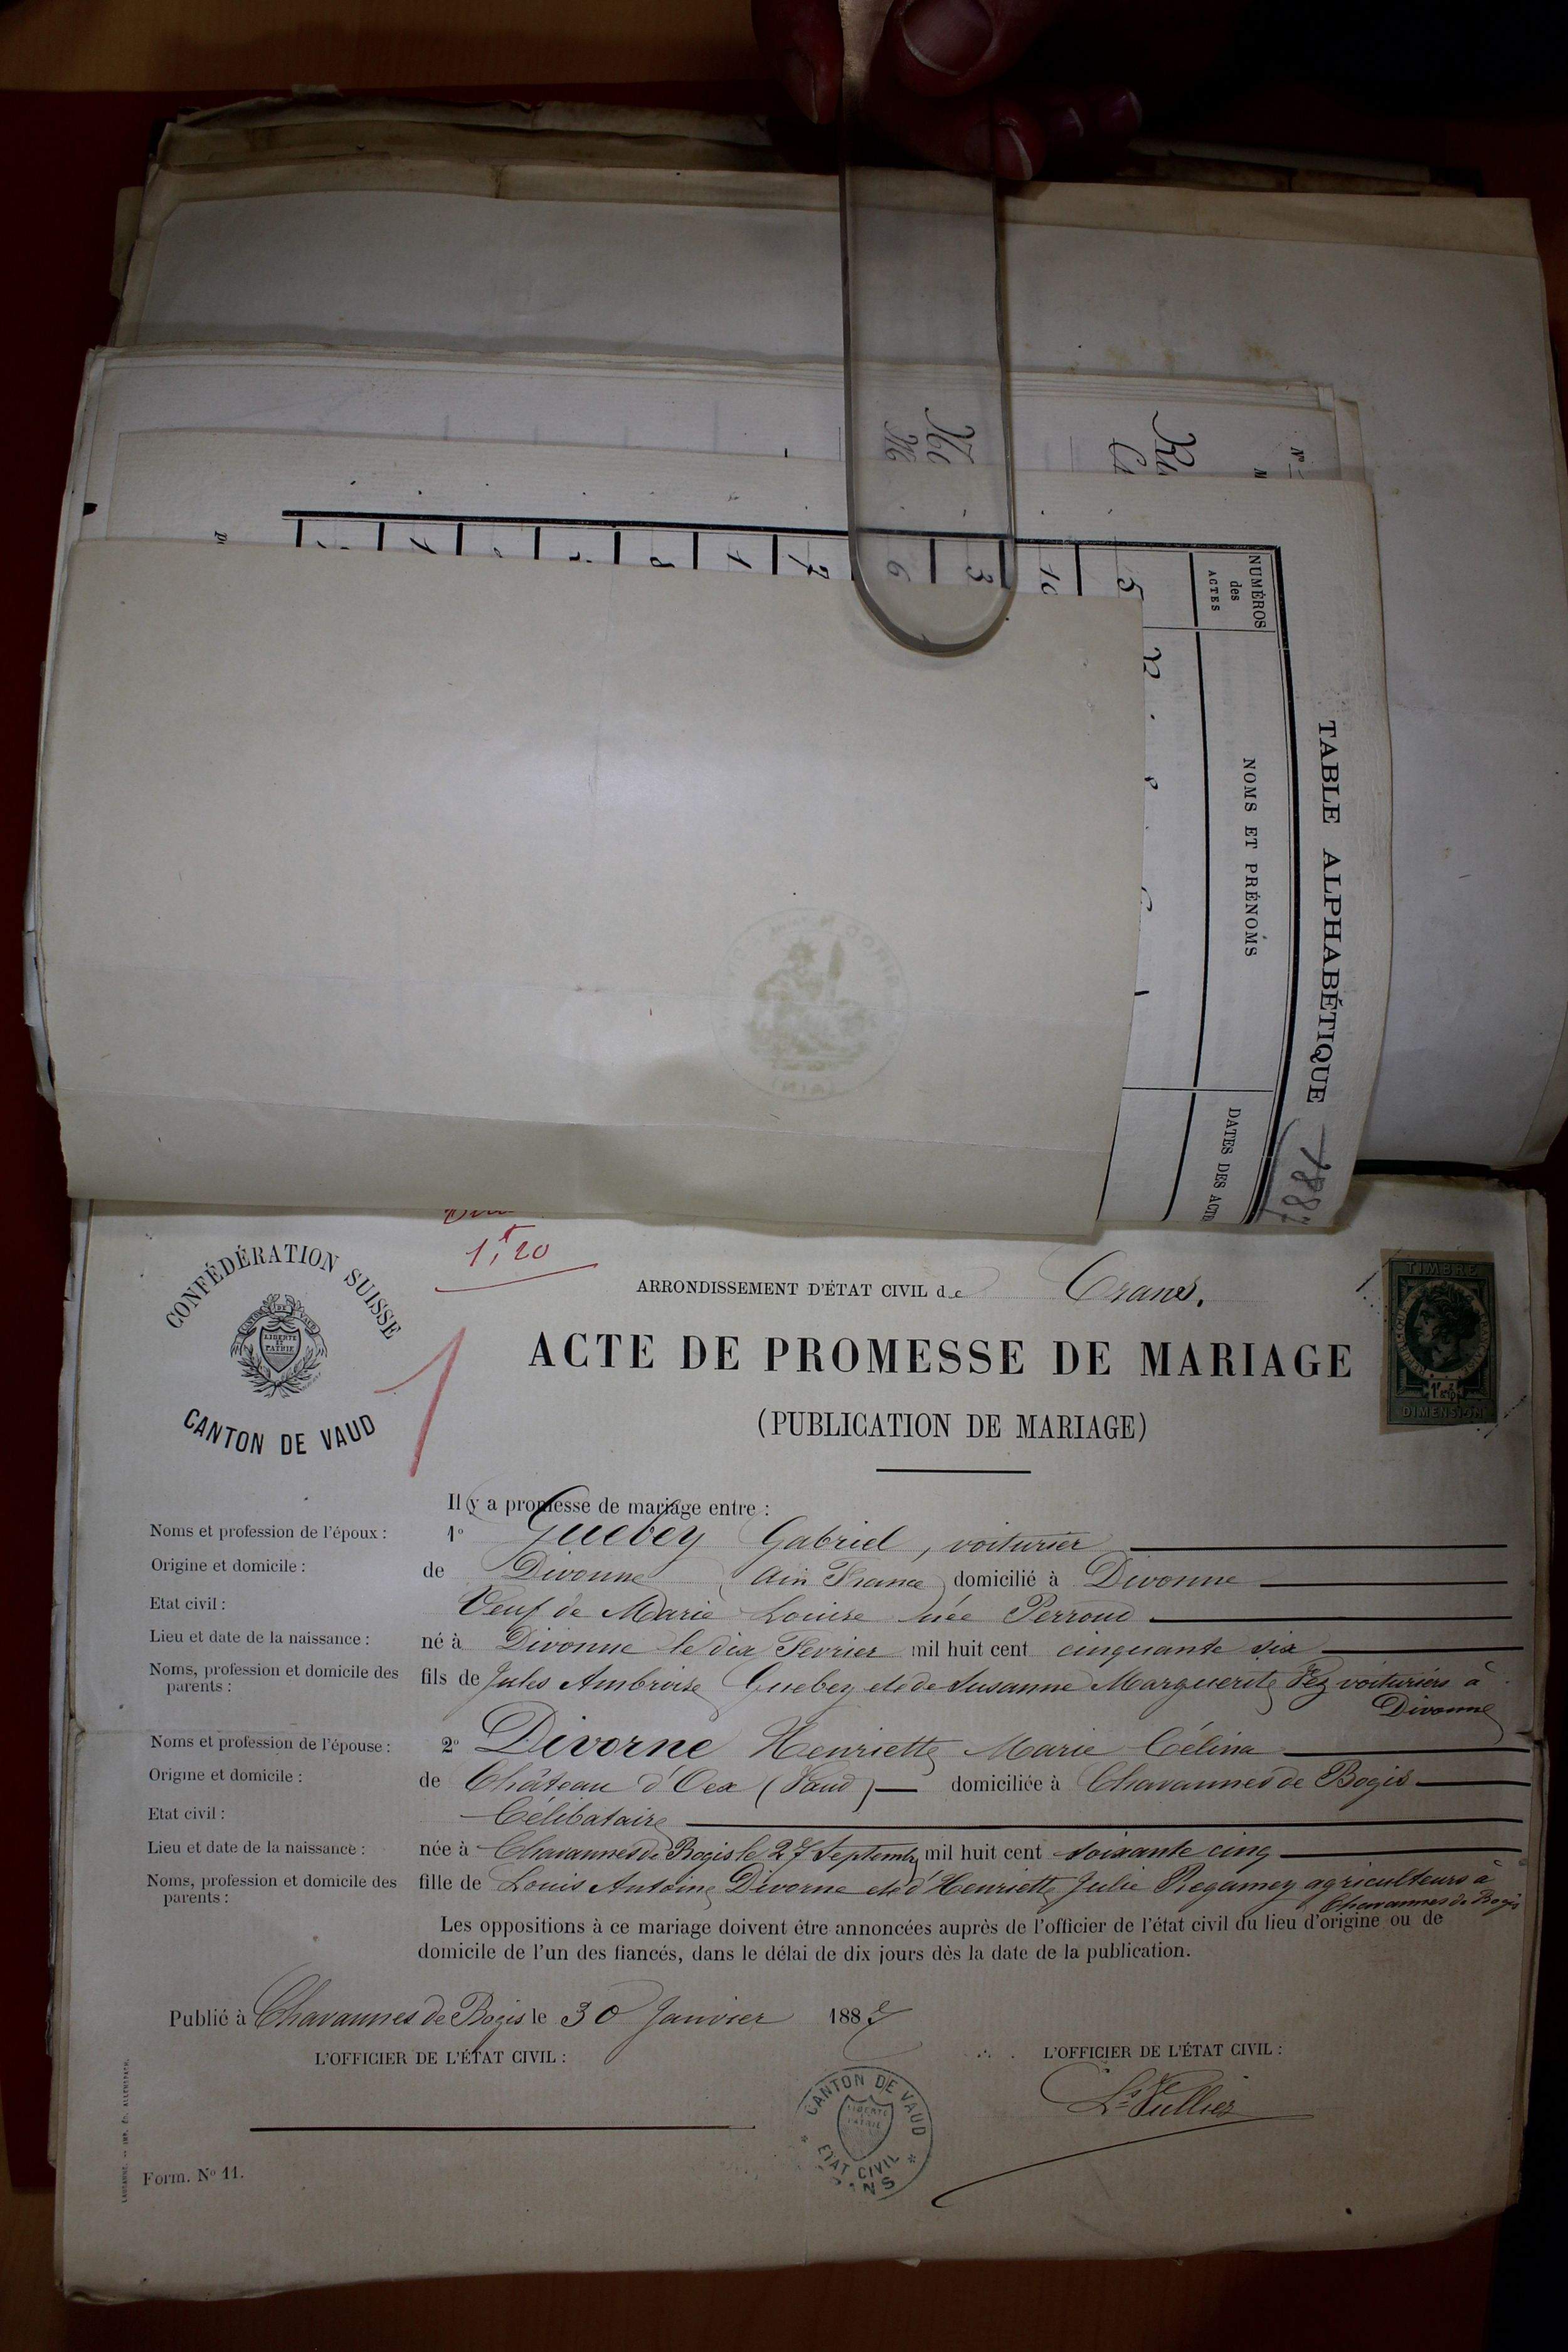 N°
TABLE ALPHABÉTIQUE 1887
NUMÉROS
des
ACTES
NOMS ET PRÉNOMS
DATES DES ACTE
5
10
3
6
(AIN)
1,20
CONFÉDÉRATION SUISSE
CANTON DE VAUD
LIBERTÉ
ET
PATRIE
CANTON DE VAUD
1
ARRONDISSEMENT D'ÉTAT CIVIL de Crans.
TIMBRE
DIMENSION
ACTE DE PROMESSE DE MARIAGE
(PUBLICATION DE MARIAGE)
Il y a promesse de mariage entre :
Noms et profession de l'époux : 1° Guebey Gabriel, voiturier
Origine et domicile : de Divonne Ain France domicilié à Divonne
Etat civil : Veuf de Marie Louise née Perroud
Lieu et date de la naissance : né à Divonne le dix Fevrier mil huit cent cinquante six
Noms, profession et domicile des parents : fils de Jules Ambroise Guebey et de Susanne Marguerite voituriers à
Divonne
Noms et profession de l'épouse : 2° Divorne Henriette Marie Célina
Origine et domicile : de Château d'Oex (Vaud) domiciliée à Chavannes de Bogis
Etat civil : Célibataire
Lieu et date de la naissance : née à Chavannes de Bogis le 27 Septembre mil huit cent soixante cinq
Noms, profession et domicile des parents : fille de Louis Antoine Divorne et d'Henriette Julie Regamey agriculteurs à
Chavannes de Bogis
Les oppositions à ce mariage doivent être annoncées auprès de l'officier de l'état civil du lieu d'origine ou de
domicile de l'un des fiancés, dans le délai de dix jours dès la date de la publication.
Publié à Chavannes de Bogis le 30 Janvier 1887
L'OFFICIER DE L'ÉTAT CIVIL :
L'OFFICIER DE L'ÉTAT CIVIL :
CANTON DE VAUD
LIBERTÉ
ET
PATRIE
ETAT CIVIL
Form. N° 11.